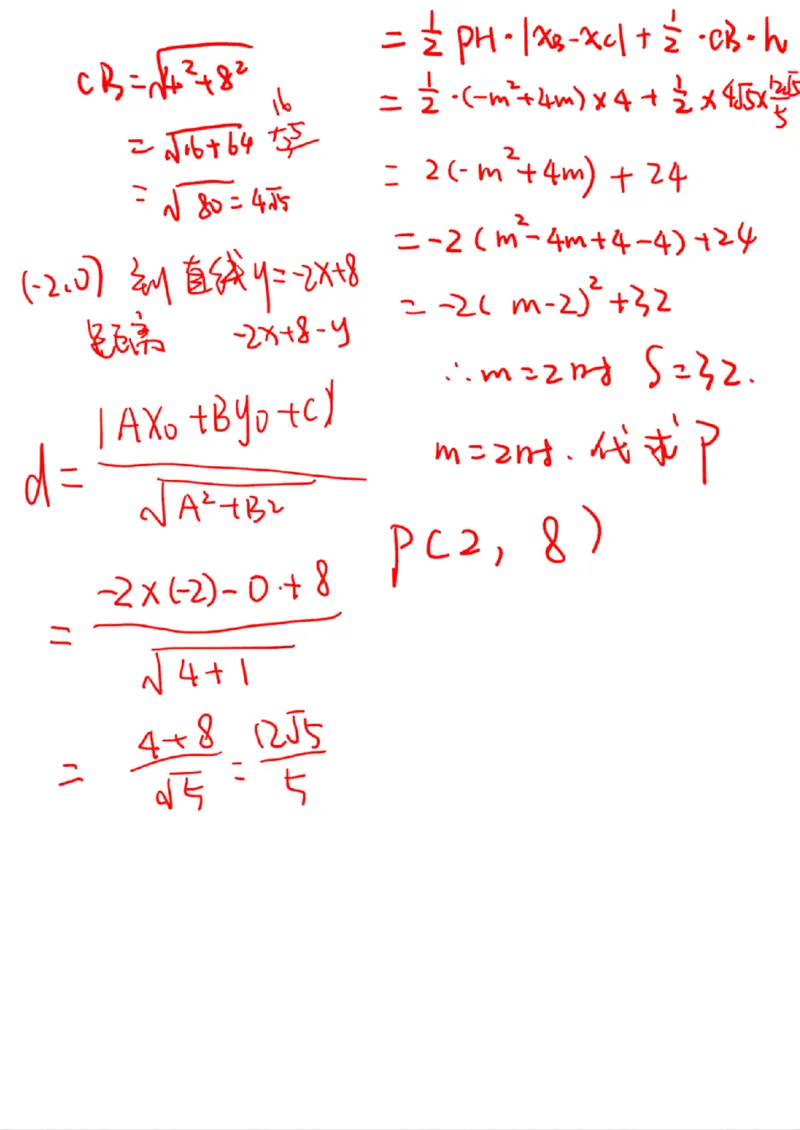 CB=√4²+8²
=√16+64
16
+5
=√80=4√5
(-2,0) 到直线y=-2x+8
距离 -2x+8-y
d=|Ax₀+By₀+C|/√A²+B²
=-2×(-2)-0+8/√4+1
=4+8/√5=12√5/5
=1/2 PH·|xB-xC|+1/2·CB·h
=1/2·(-m²+4m)×4+1/2×4√5×12√5/5
=2(-m²+4m)+24
=-2(m²-4m+4-4)+24
=-2(m-2)²+32
∴m=2时 S=32.
m=2时.代求P
P(2,8)